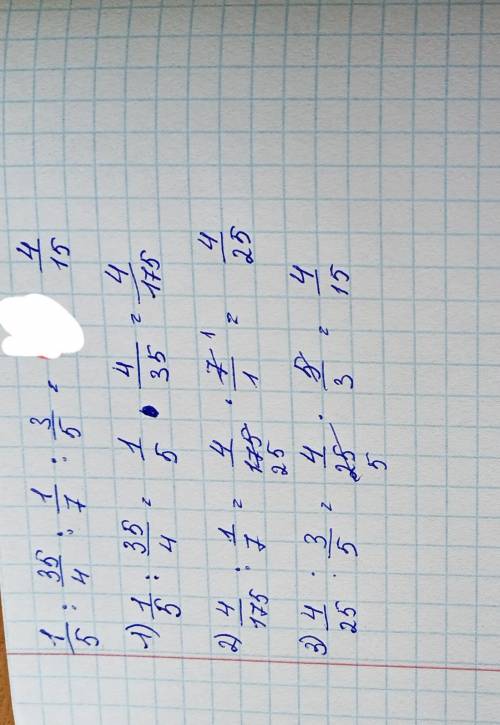 1/5 : 35/4 : 1/7 : 3/5 = 4/15
1) 1/5 : 35/4 = 1/5 · 4/35 = 4/175
2) 4/175 : 1/7 = 4/175 25 · 7/1 1 = 4/25
3) 4/25 · 3/5 = 4/25 5 · 5/3 = 4/15